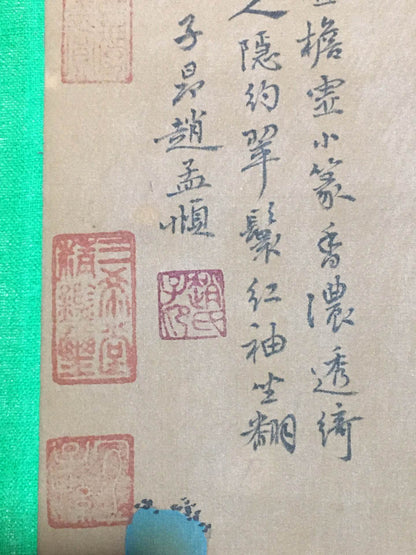 檐虚小篆香濃透綺
人隱約翠鬟紅袖坐翻
子昂趙孟頫
趙氏子昂
三希堂精鑑璽